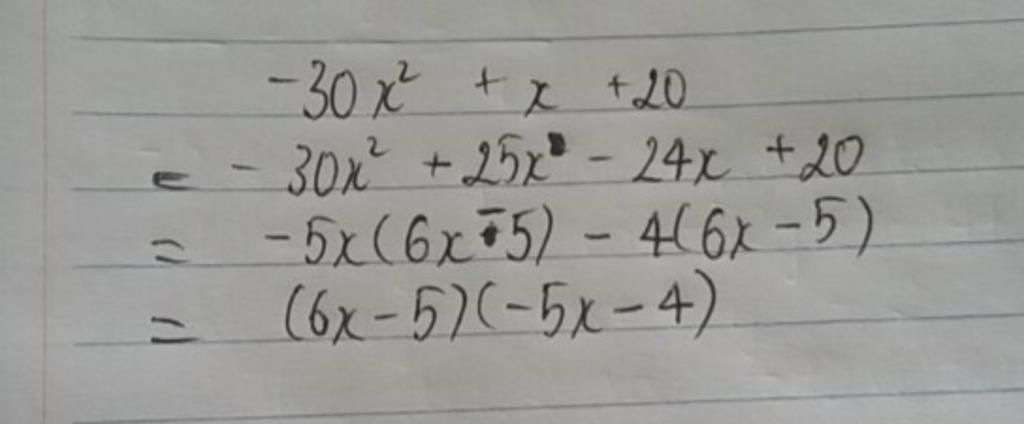 -30x² + x + 20
= -30x² + 25x - 24x + 20
= -5x(6x-5) - 4(6x-5)
= (6x-5)(-5x-4)